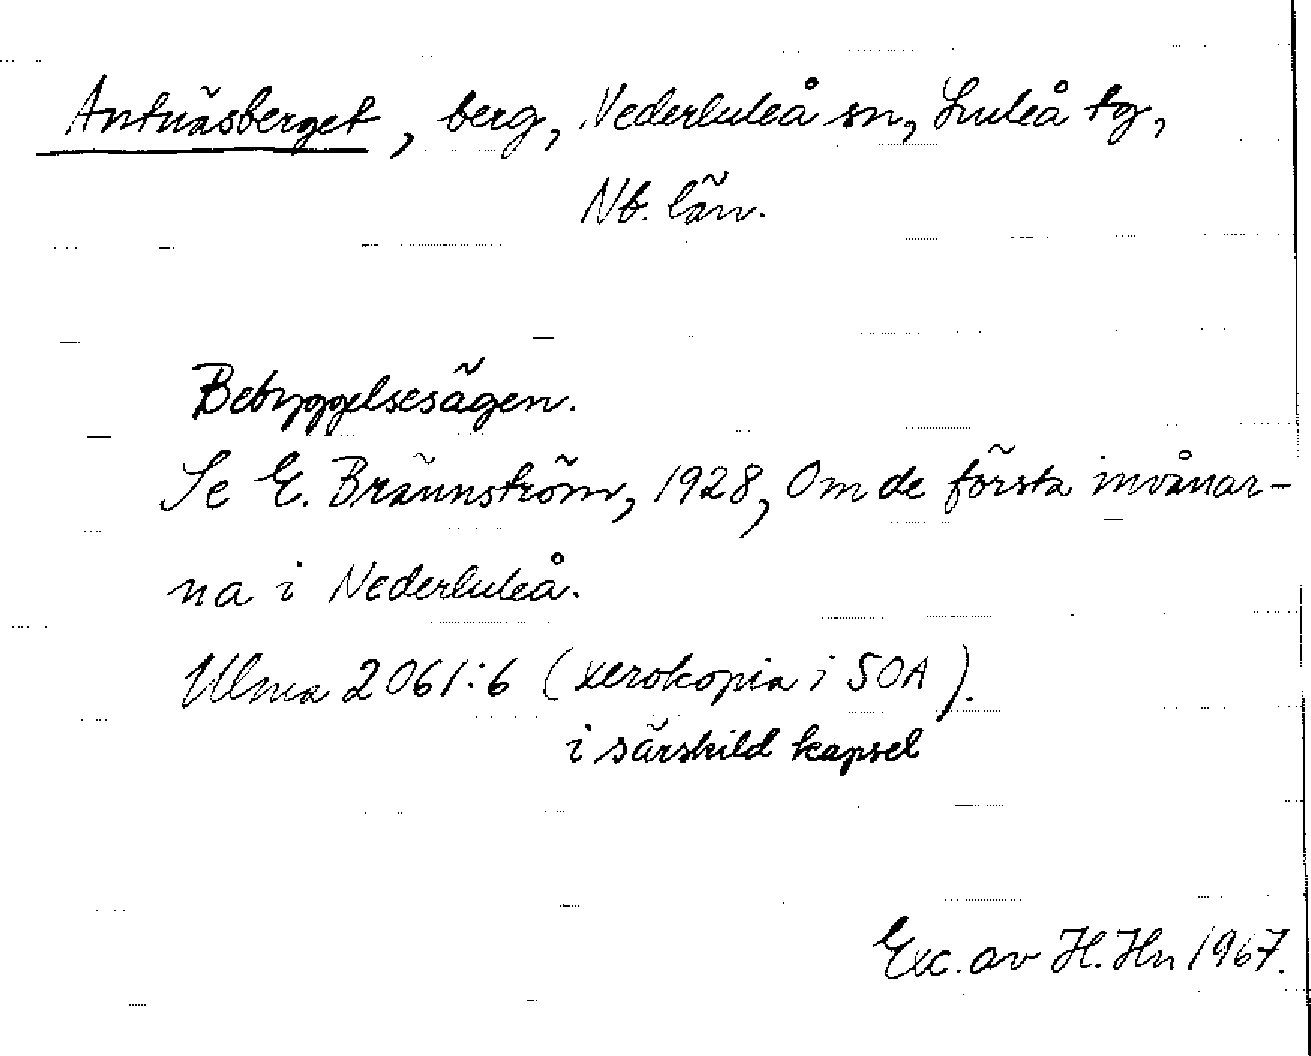 Antnäsberget, berg, Nederluleå sn, Luleå tg,
Nb. län.
Bebyggelsesägen.
Se E. Brännström, 1928, Om de första invånar-
na i Nederluleå.
Ulma 2061:6 (xerokopia i SOA).
i särskild kapsel
Exc. av H. Hn 1967.